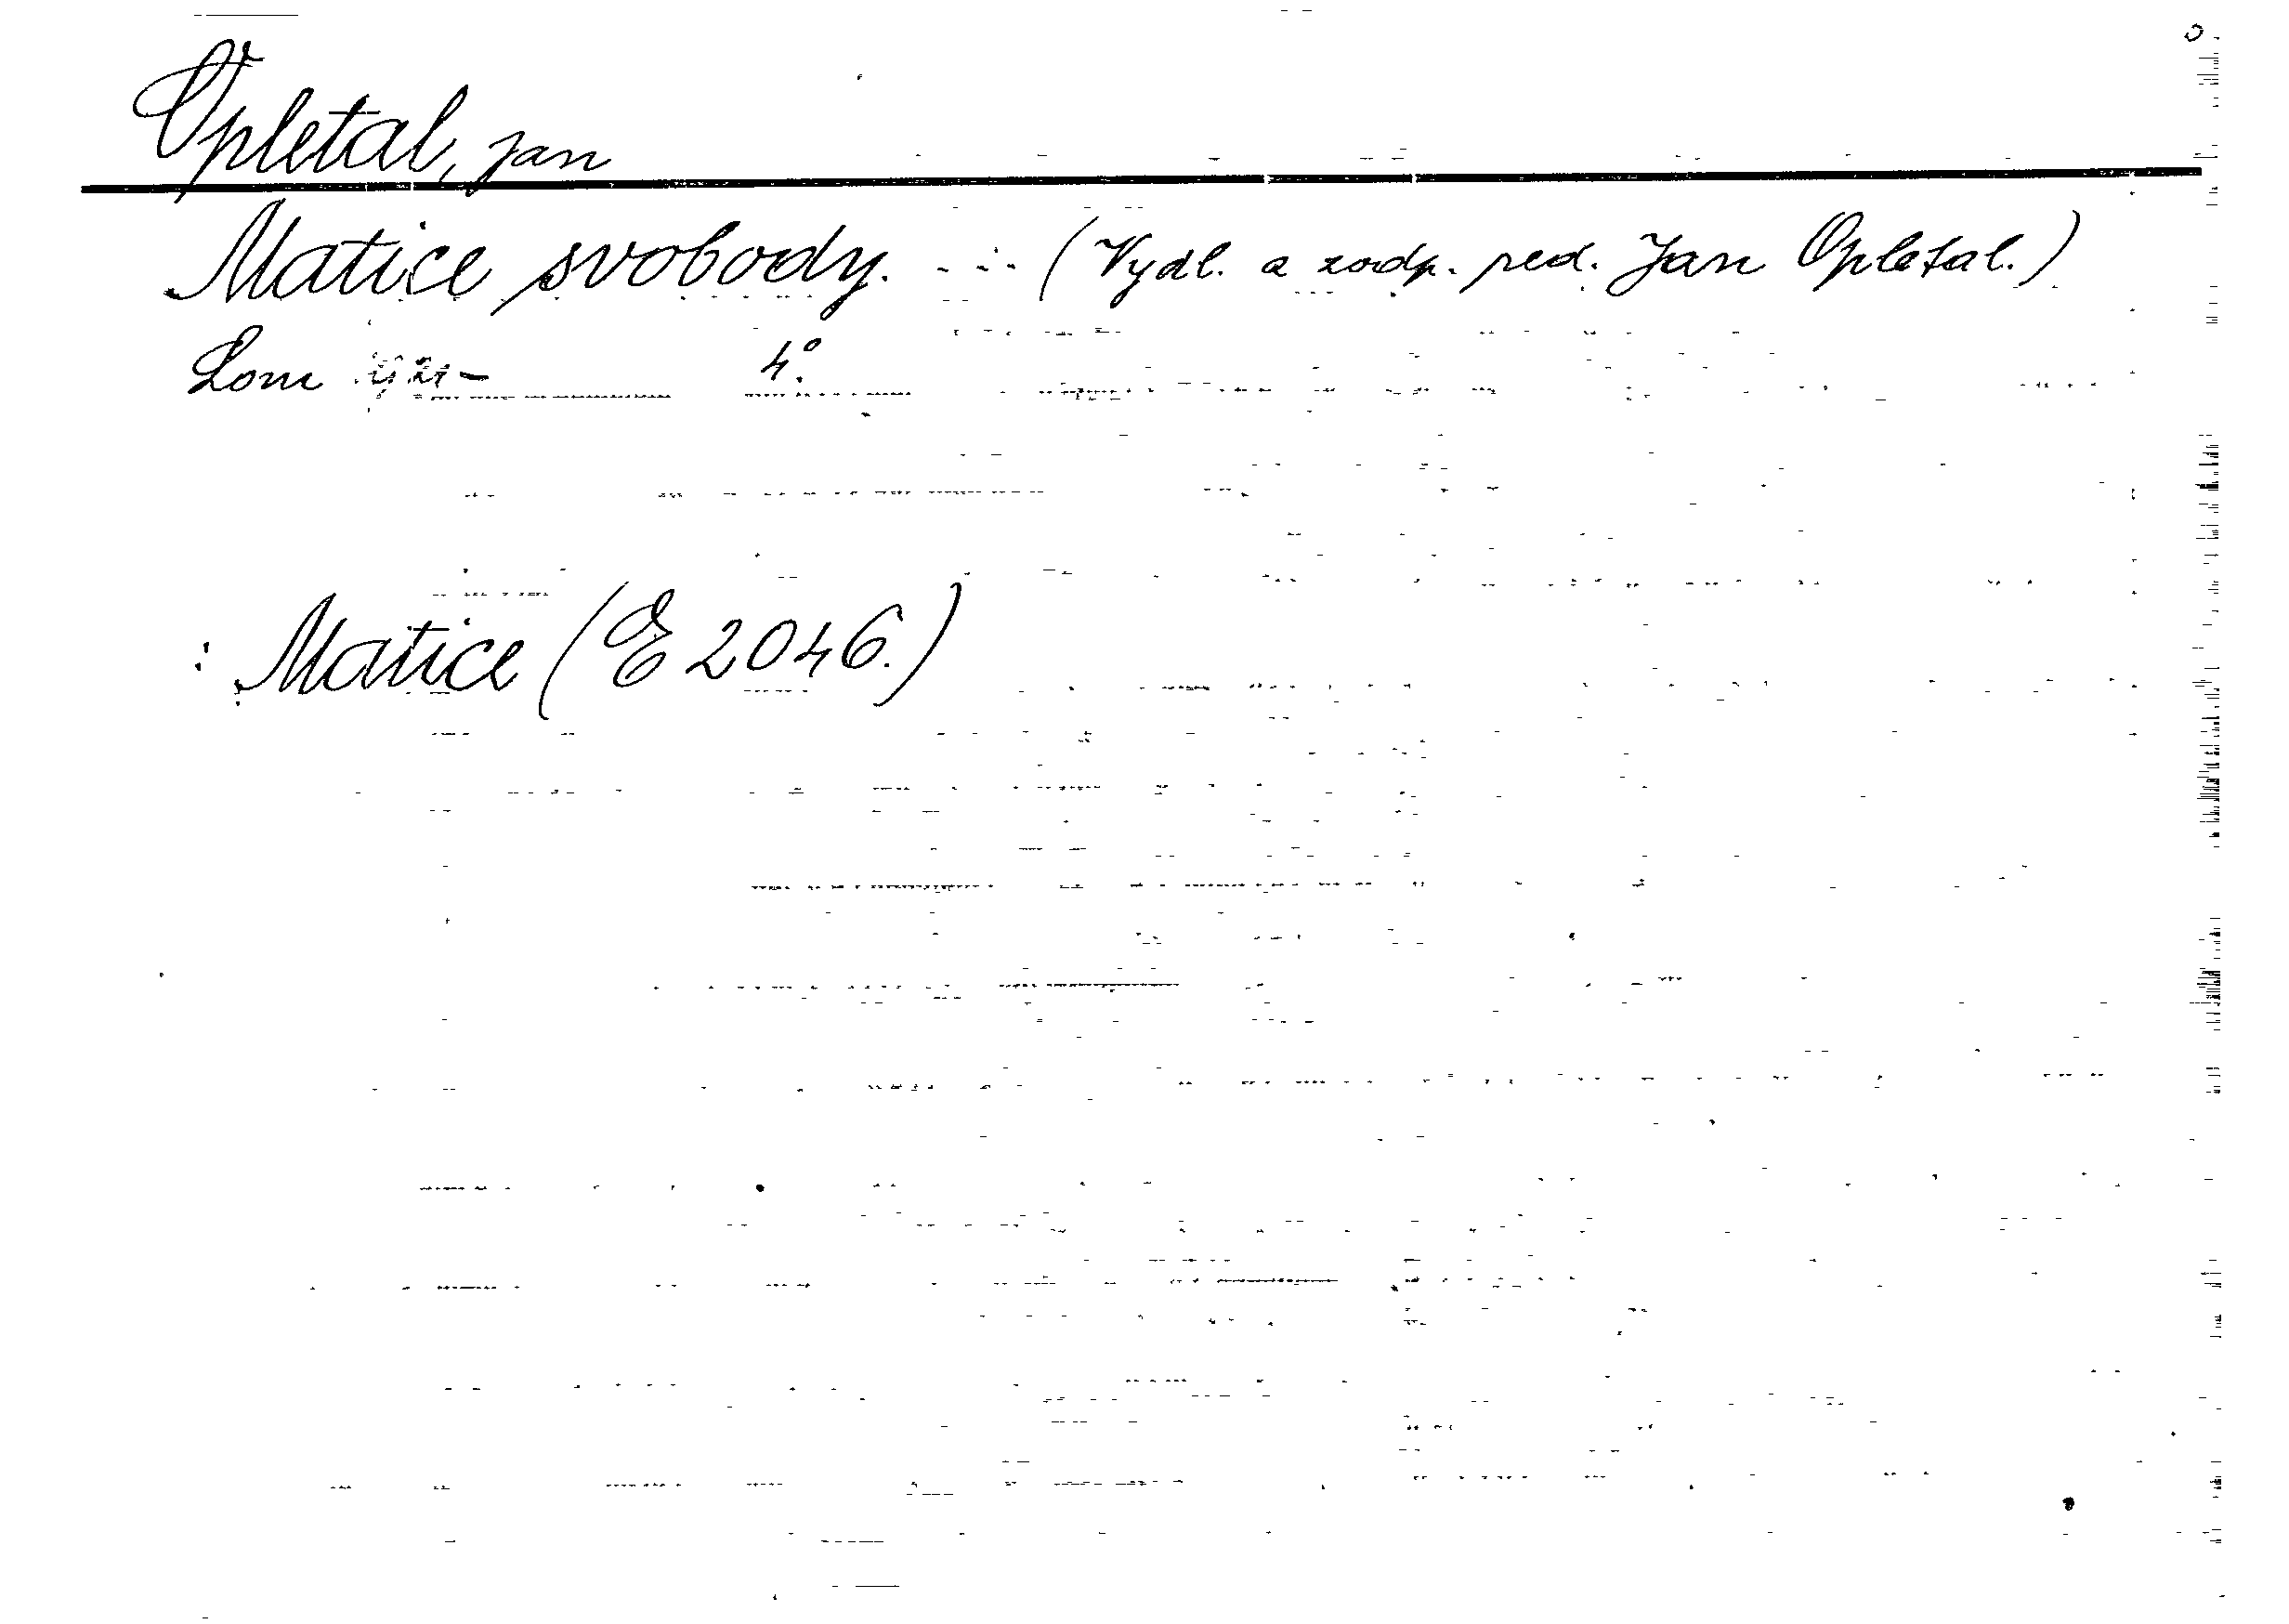 Opletal, Jan
Matice svobody. - - - (Vydl. a zodp. red. Jan Opletal.)
Lom 4°.
: Matice (E 2046.)